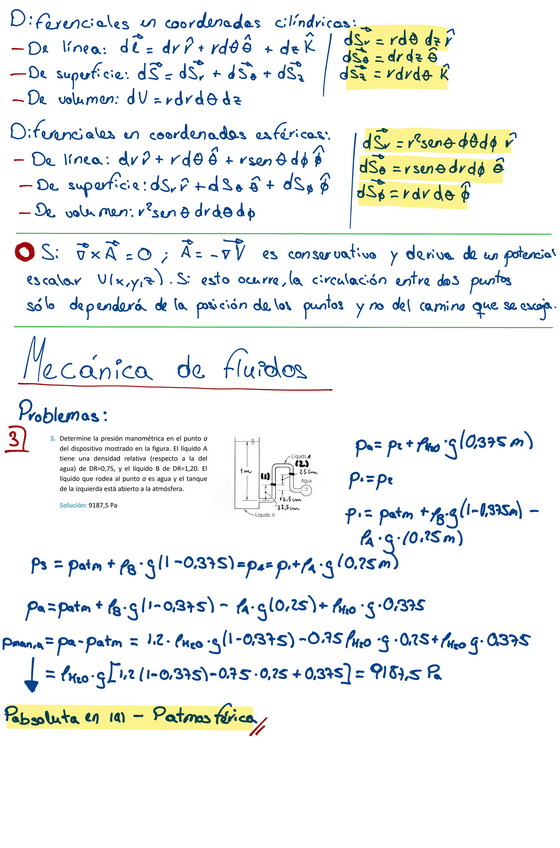 Diferenciales en coordenadas cilíndricas:
– De línea: dl⃗ = dr r̂ + rdθ θ̂ + dz k̂
dS⃗r = rdθ dz r̂
– De superficie: dS⃗ = dS⃗r + dS⃗θ + dS⃗z
dS⃗θ = dr dz θ̂
– De volumen: dV = rdrdθdz
dS⃗z = rdrdθ k̂
Diferenciales en coordenadas esféricas:
dS⃗r = r²senθ ϕθdϕ r̂
– De línea: dr r̂ + rdθ θ̂ + rsenθdϕ ϕ̂
dS⃗θ = rsenθdrdϕ θ̂
– De superficie: dSr r̂ + dSθ θ̂ + dSϕ ϕ̂
dS⃗ϕ = rdrdθ ϕ̂
– De volumen: r²senθdrdθdϕ
Si ∇⃗×A⃗ = 0 ; A⃗ = -∇⃗V es conservativo y deriva de un potencial
escalar V(x,y,z). Si esto ocurre, la circulación entre dos puntos
sólo dependerá de la posición de los puntos y no del camino que se escoja.
Mecánica de fluidos
Problemas:
3
3. Determine la presión manométrica en el punto a
del dispositivo mostrado en la figura. El líquido A
tiene una densidad relativa (respecto a la del
agua) de DR=0,75, y el líquido B de DR=1,20. El
líquido que rodea al punto a es agua y el tanque
de la izquierda está abierto a la atmósfera.
Solución: 9187,5 Pa
Líquido A
(2)
(1)
1 m
25 cm
Agua
12.5 cm
37,5 cm
Líquido B
pa = p2 + ρH2O·g(0,375m)
p1 = p2
p1 = patm + ρB·g(1-0,375m) –
ρA·g·(0,25m)
p3 = patm + ρB·g(1-0,375) = p4 = p1 + ρA·g(0,25m)
pa = patm + ρB·g(1-0,375) – ρA·g(0,25) + ρH2O·g·0,375
pman,a = pa - patm = 1,2·ρH2O·g(1-0,375) – 0,75 ρH2O·g·0,25 + ρH2O·g·0,375
↓ = ρH2O·g[1,2(1-0,375) - 0,75·0,25 + 0,375] = 9187,5 Pa
Pabsoluta en (a) – Patmosférica